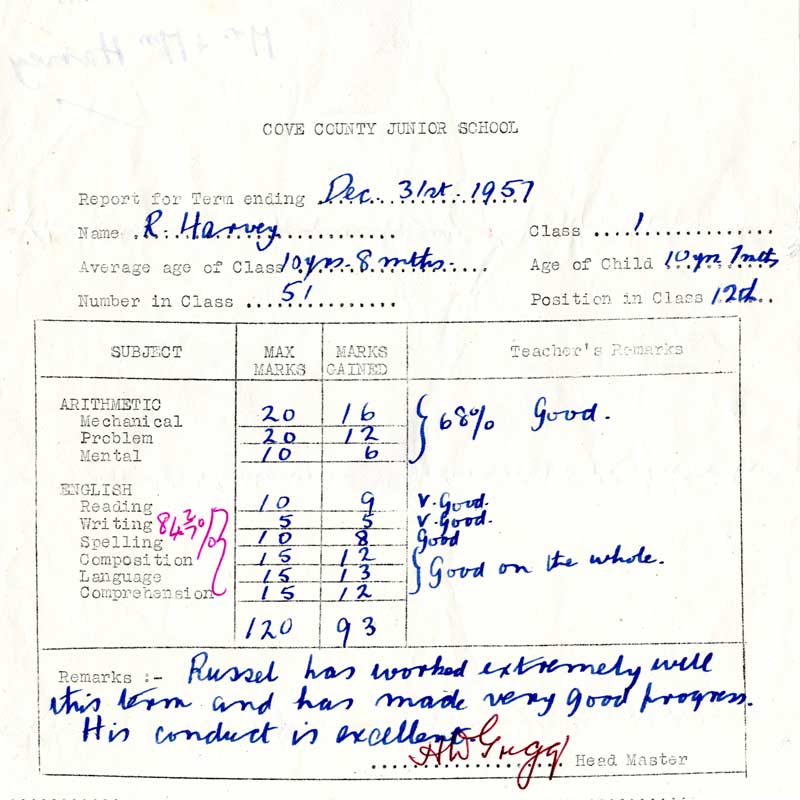 Mr. & Mrs Harvey
COVE COUNTY JUNIOR SCHOOL
Report for Term ending Dec. 31st. 1957
Name R. Harvey Class 1
Average age of Class 10 yrs. 8 mths. Age of Child 10 yrs 7 mths
Number in Class 51 Position in Class 12th
SUBJECT MAX MARKS MARKS GAINED Teacher's Remarks
ARITHMETIC
Mechanical 20 16
Problem 20 12 } 68% Good.
Mental 10 6
ENGLISH
Reading 10 9 V. Good.
Writing 5 5 V. Good.
84 2/7 %
Spelling 10 8 Good
Composition 15 12
Language 15 13 } Good on the whole.
Comprehension 15 12
120 93
Remarks :- Russel has worked extremely well
this term and has made very good progress.
His conduct is excellent.
A W Gregg Head Master